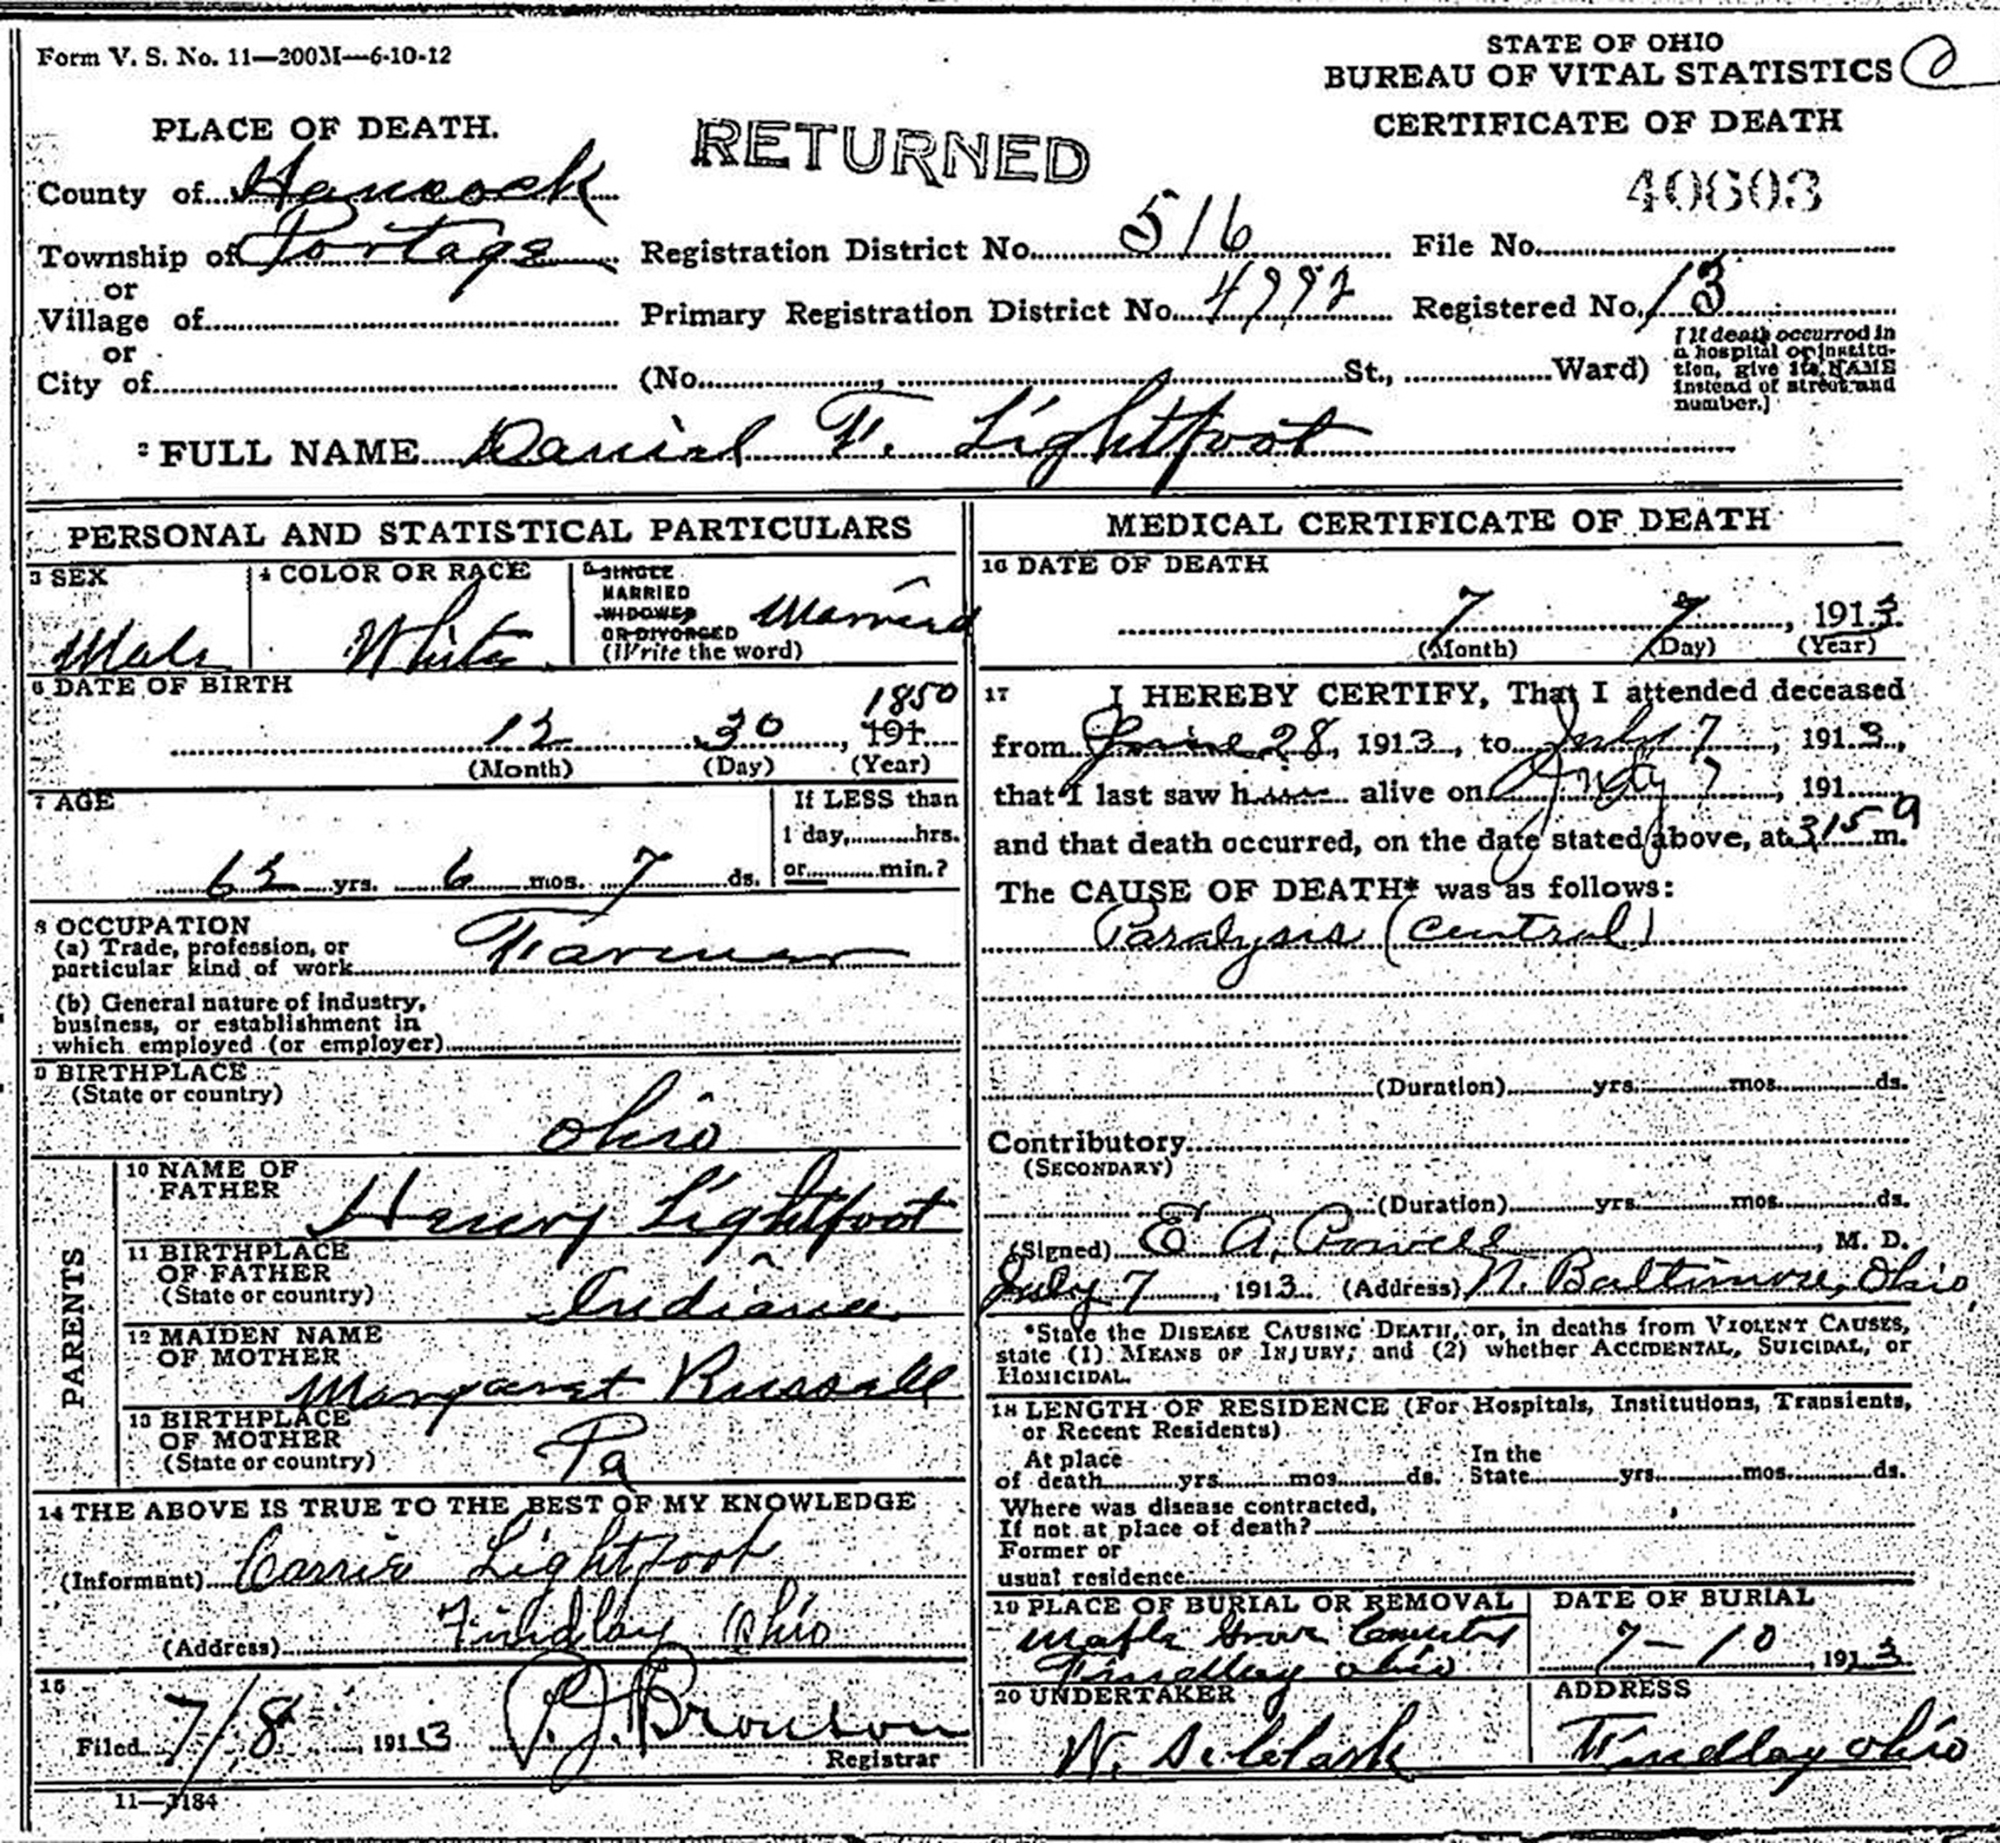 Form V. S. No. 11—200M—6-10-12
STATE OF OHIO
BUREAU OF VITAL STATISTICS
CERTIFICATE OF DEATH
PLACE OF DEATH.
RETURNED
40603
County of Hancock
Township of Portage Registration District No. 516 File No.
or
Village of Primary Registration District No. Registered No. 13
or
City of (No. St., Ward)
[If death occurred in
a hospital or institu-
tion, give its NAME
instead of street and
number.]
2 FULL NAME Daniel F. Lightfoot
PERSONAL AND STATISTICAL PARTICULARS
3 SEX
Male
4 COLOR OR RACE
White
5 SINGLE
MARRIED
WIDOWED
OR DIVORCED
(Write the word)
Married
6 DATE OF BIRTH
12 30, 191 1850
(Month) (Day) (Year)
7 AGE
62 yrs. 6 mos. 7 ds.
If LESS than
1 day, hrs.
or min.?
8 OCCUPATION
(a) Trade, profession, or
particular kind of work Farmer
(b) General nature of industry,
business, or establishment in
which employed (or employer)
9 BIRTHPLACE
(State or country)
Ohio
PARENTS
10 NAME OF
FATHER
Henry Lightfoot
11 BIRTHPLACE
OF FATHER
(State or country)
Indiana
12 MAIDEN NAME
OF MOTHER
Margaret Russall
13 BIRTHPLACE
OF MOTHER
(State or country)
Pa
14 THE ABOVE IS TRUE TO THE BEST OF MY KNOWLEDGE
(Informant) Carrie Lightfoot
(Address) Findlay Ohio
15
Filed 7/8, 1913 P. J. Bronson
Registrar
11—3184
MEDICAL CERTIFICATE OF DEATH
16 DATE OF DEATH
7 7, 1913
(Month) (Day) (Year)
17 I HEREBY CERTIFY, That I attended deceased
from June 28, 1913, to July 7, 1913,
that I last saw h alive on July 7, 191
and that death occurred, on the date stated above, at 315 a m.
The CAUSE OF DEATH* was as follows:
Paralysis (central)
(Duration) yrs. mos. ds.
Contributory
(SECONDARY)
(Duration) yrs. mos. ds.
(Signed) E A. Powell, M. D.
July 7, 1913 (Address) N. Baltimore, Ohio
*State the DISEASE CAUSING DEATH, or, in deaths from VIOLENT CAUSES,
state (1) MEANS OF INJURY; and (2) whether ACCIDENTAL, SUICIDAL, or
HOMICIDAL.
18 LENGTH OF RESIDENCE (For Hospitals, Institutions, Transients,
or Recent Residents)
At place
of death yrs. mos. ds.
In the
State yrs. mos. ds.
Where was disease contracted,
If not at place of death?
Former or
usual residence
19 PLACE OF BURIAL OR REMOVAL
Maple Grove Cemetery
Findlay Ohio
DATE OF BURIAL
7-10, 1913
20 UNDERTAKER
W. Clark
ADDRESS
Findlay Ohio